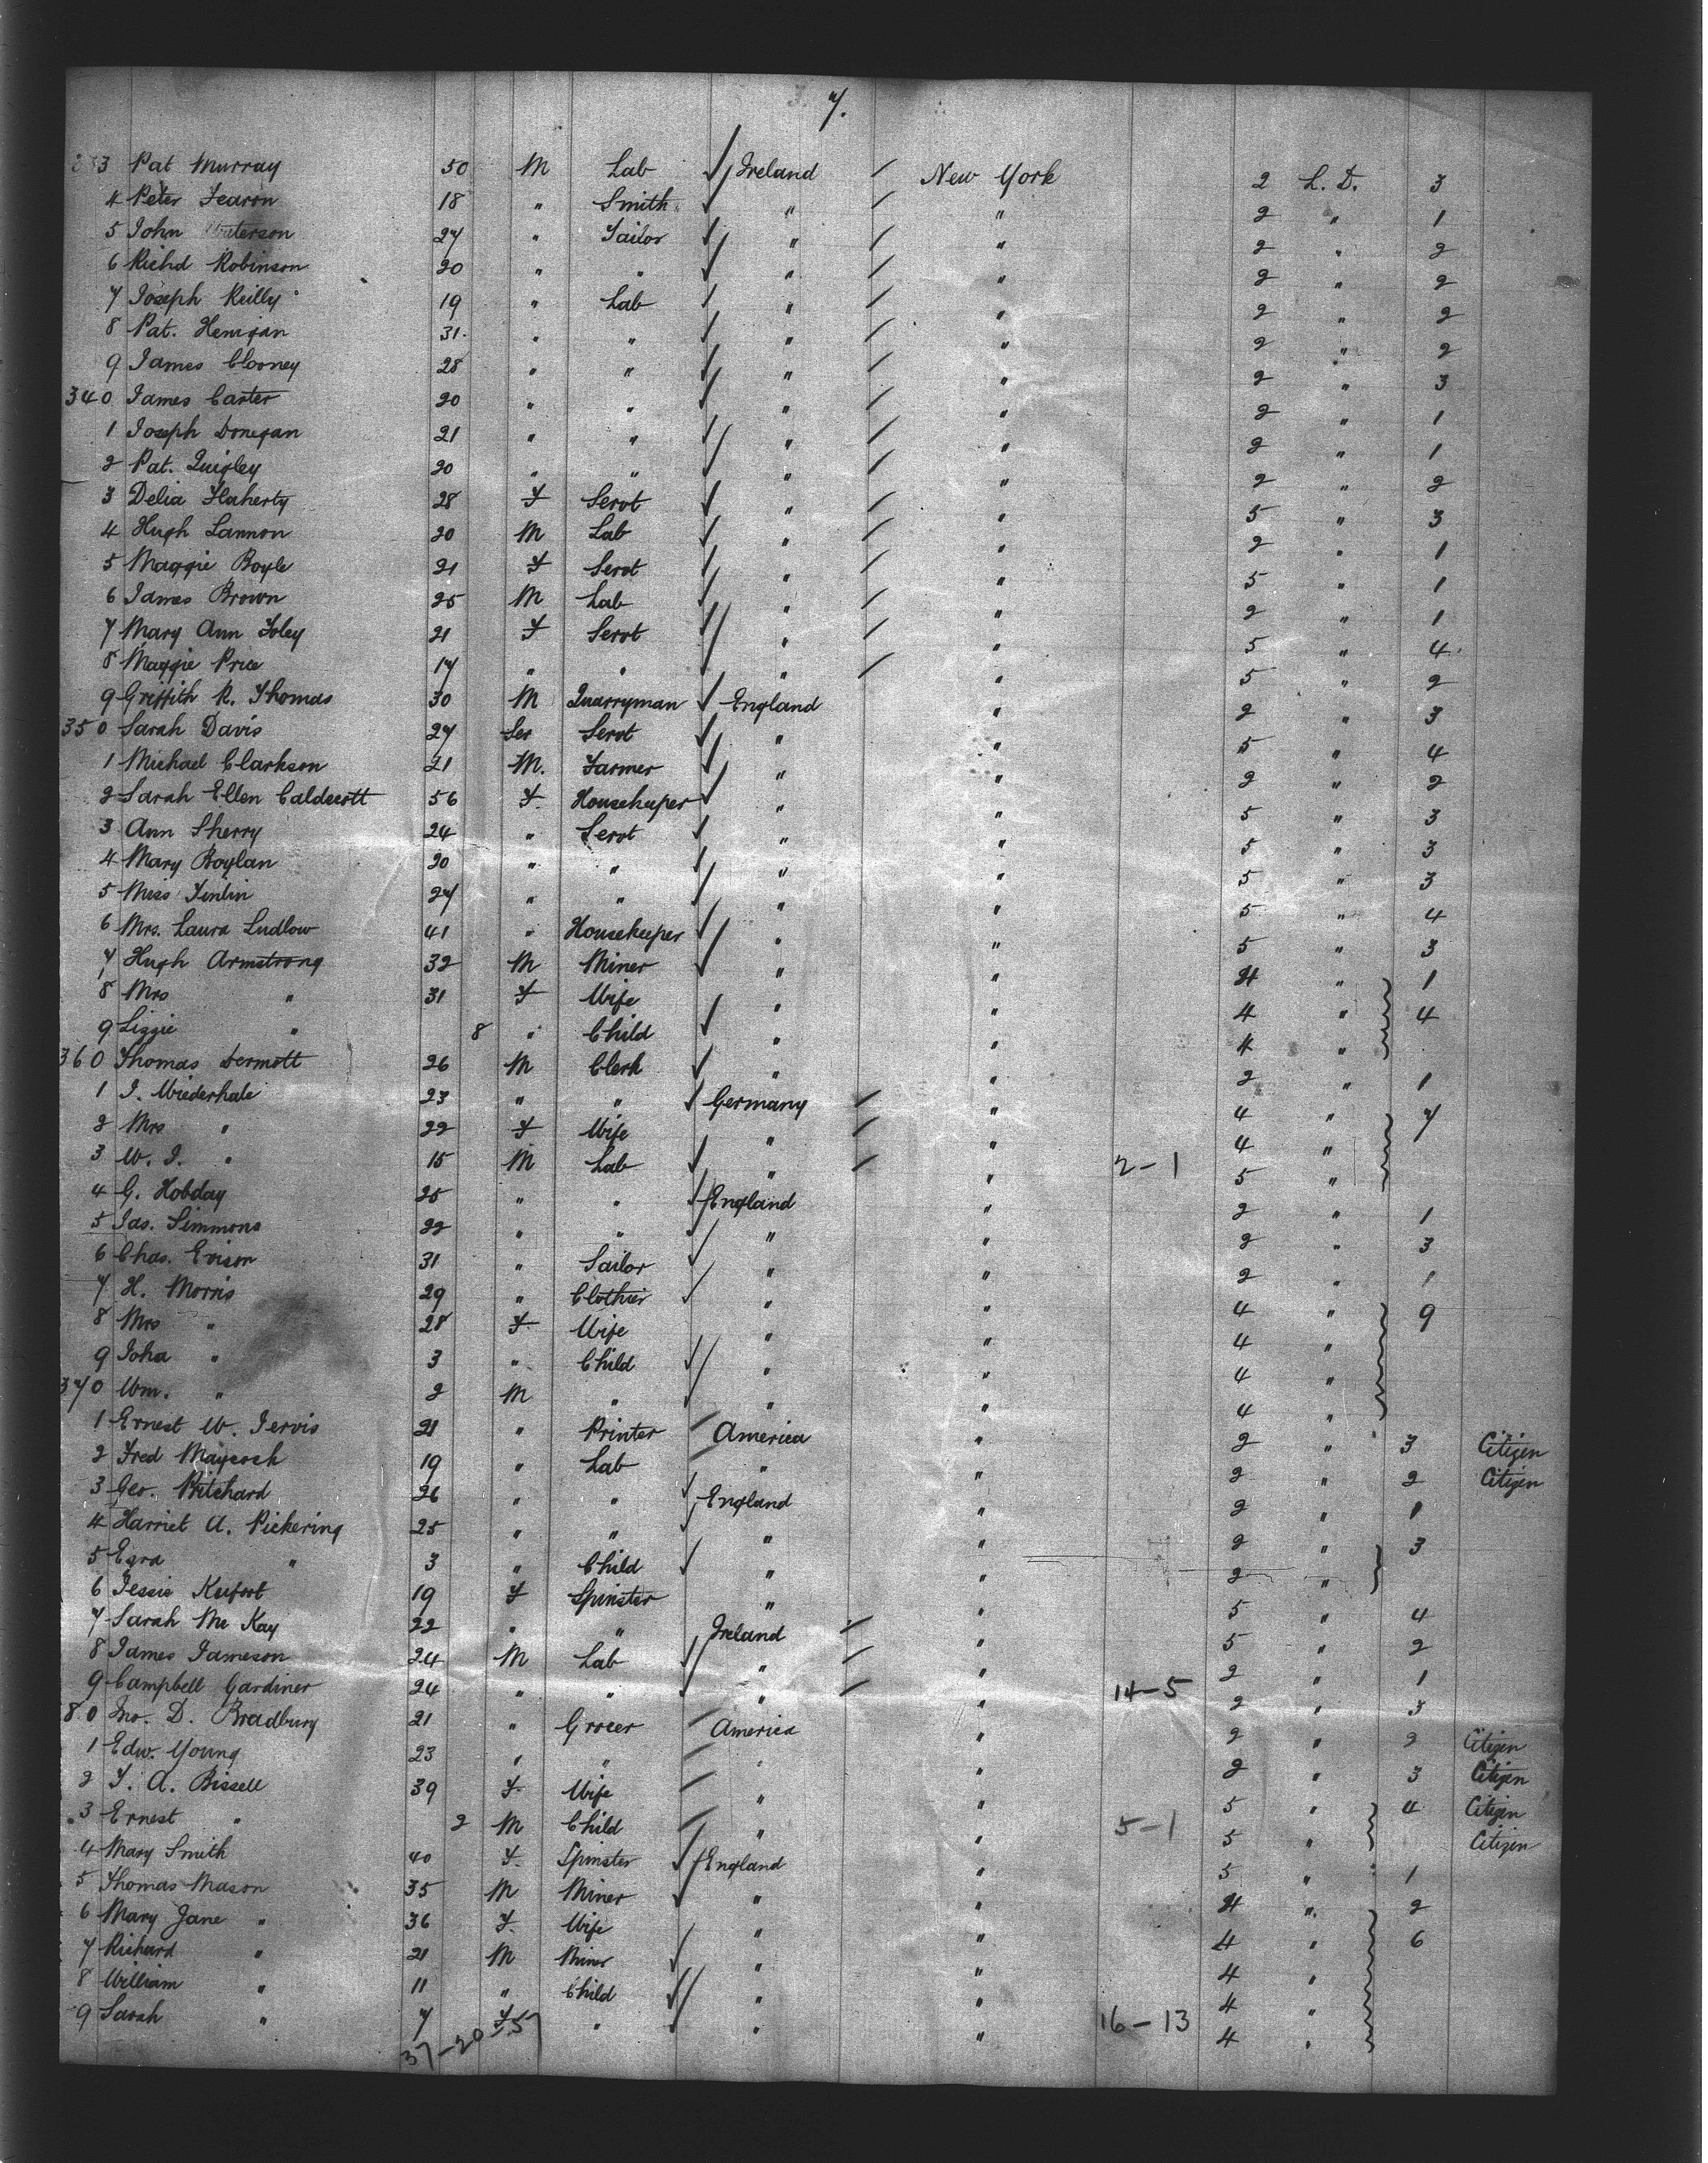 7.
333 Pat Murray 50 M Lab Ireland New York 2 L. D. 3
4 Peter Fearon 18 " Smith " " 2 " 1
5 John 27 " Tailor " " 2 " 2
6 Richd Robinson 20 " " " " 2 " 2
7 Joseph Reilly 19 " Lab " " 2 " 2
8 Pat. Henigan 31 " " " " 2 " 2
9 James Clooney 28 " " " " 2 " 3
340 James Carter 20 " " " " 2 " 1
1 Joseph Donegan 21 " " " " 2 " 1
2 Pat. Quigley 20 " " " " 2 " 2
3 Delia Flaherty 28 F Servt " " 5 " 3
4 Hugh Lannon 20 M Lab " " 2 " 1
5 Maggie Boyle 21 F Servt " " 5 " 1
6 James Brown 25 M Lab " " 2 " 1
7 Mary Ann Foley 21 F Servt " " 5 " 4
8 Maggie Price 17 " " " " 5 " 2
9 Griffith R. Thomas 30 M Quarryman England " 2 " 3
350 Sarah Davis 27 Ser Servt " " 5 " 4
1 Michael Clarkson 21 M. Farmer " " 2 " 2
2 Sarah Ellen Caldecott 56 F. Housekeeper " " 5 " 3
3 Ann Sherry 24 " Servt " " 5 " 3
4 Mary Boylan 20 " " " " 5 " 3
5 Miss Tinlin 27 " " " " 5 " 4
6 Mrs. Laura Ludlow 41 " Housekeeper " " 5 " 3
7 Hugh Armstrong 32 M Miner " " 4 " 1
8 Mrs " 31 F Wife " " 4 " 4
9 Lizzie " 8 " Child " " 4 "
360 Thomas Dermott 26 M Clerk " " 2 " 1
1 J. Wiederhale 23 " " Germany " 4 " 7
2 Mrs " 22 F Wife " " 4 "
3 W. J. " 15 M Lab " " 2-1 5 "
4 G. Hobday 25 " " England " 2 " 1
5 Jas. Simmons 22 " " " " 2 " 3
6 Chas. Evison 31 " Sailor " " 2 " 1
7 H. Morris 29 " Clothier " " 4 " 9
8 Mrs " 28 F Wife " " 4 "
9 Joha " 3 " Child " " 4 "
370 Wm. " 2 M " " " 4 "
1 Ernest W. Jervis 21 " Printer America " 2 " 3 Citizen
2 Fred Maycock 19 " Lab " " 2 " 2 Citizen
3 Geo. Pritchard 26 " " England " 2 " 1
4 Harriet A. Pickering 25 " " " " 2 " 3
5 Ezra " 3 " Child " " 2 "
6 Jessie Kufoot 19 F Spinster " " 5 " 4
7 Sarah Mc Kay 22 " " Ireland " 5 " 2
8 James Jameson 24 M Lab " " 2 " 1
9 Campbell Gardiner 24 " " " " 14-5 2 " 3
80 Jno. D. Bradbury 21 " Grocer America " 2 " 2 Citizen
1 Edw. Young 23 " " " " 2 " 3 Citizen
2 F. A. Bissell 39 F Wife " " 5 " 4 Citizen
3 Ernest " 2 M Child " " 5-1 5 " Citizen
4 Mary Smith 40 F. Spinster England " 5 " 1
5 Thomas Mason 35 M Miner " " 4 " 2
6 Mary Jane " 36 F. Wife " " 4 " 6
7 Richard " 21 M Miner " " 4 "
8 William " 11 " Child " " 4 "
9 Sarah " 7 F " " " 16-13 4 "
37-20 57